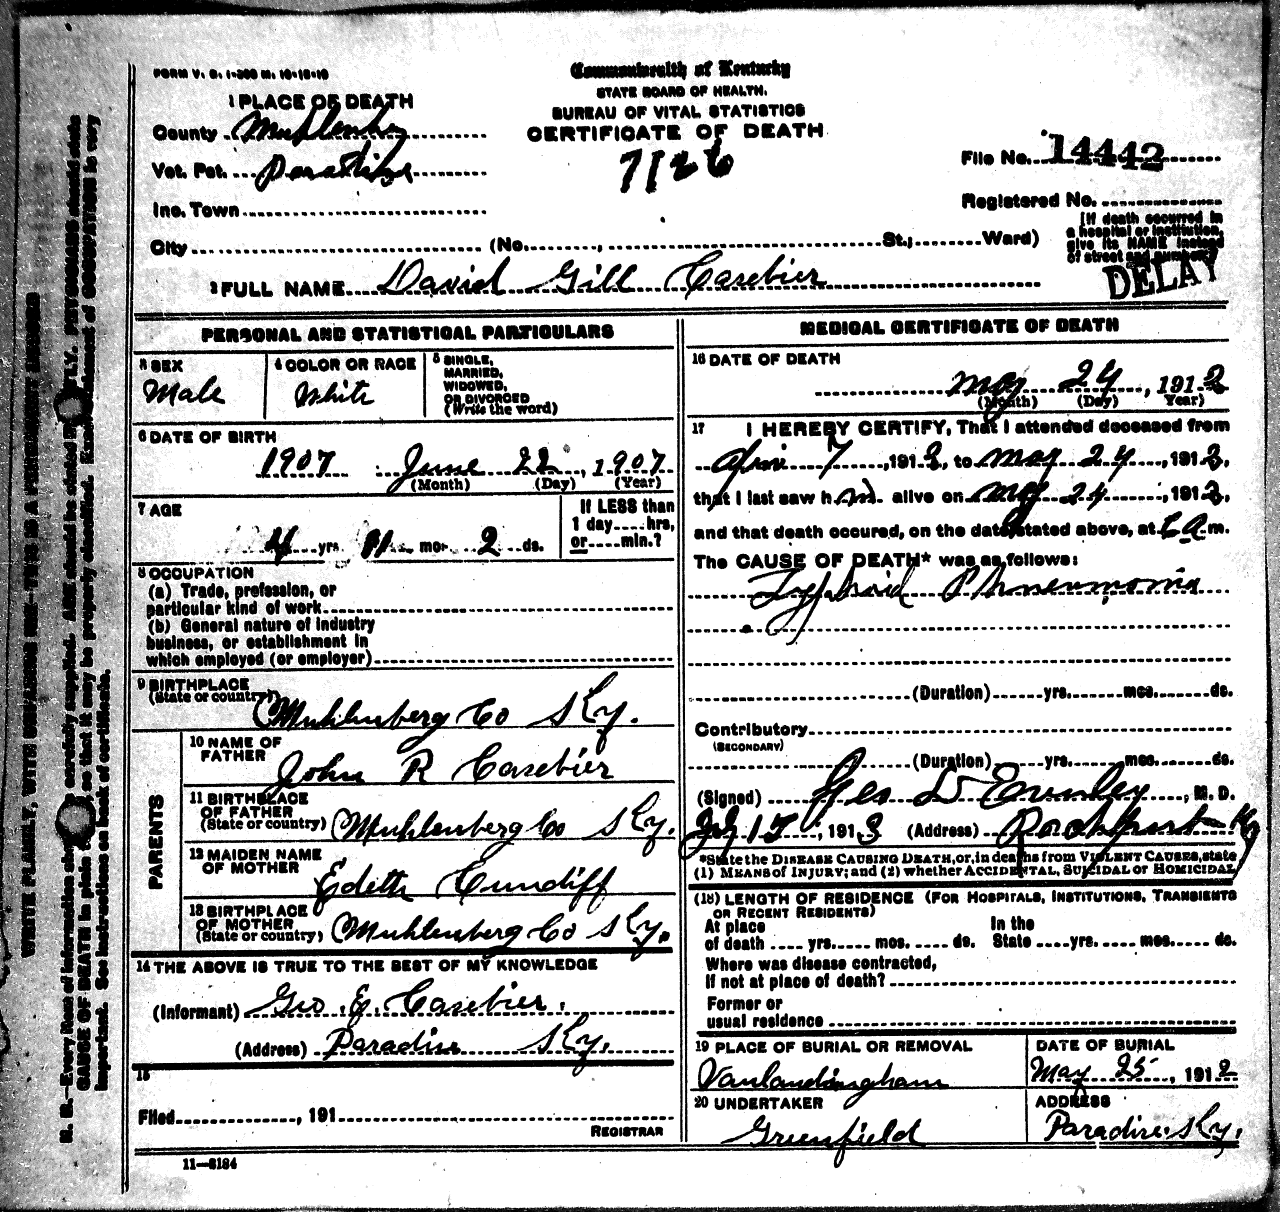 FORM V. S. 1-300 M. 10-10-10
Commonwealth of Kentucky
STATE BOARD OF HEALTH.
BUREAU OF VITAL STATISTICS
CERTIFICATE OF DEATH
7126
1 PLACE OF DEATH
County Muhlenberg
Vot. Pct. Paradise
Inc. Town
City (No. , St.; Ward)
File No. 14442
Registered No.
[If death occurred in
a hospital or institution,
give its NAME instead
of street and number.]
DELAY
2 FULL NAME David Gill Casebier
PERSONAL AND STATISTICAL PARTICULARS
3 SEX
Male
4 COLOR OR RACE
White
5 SINGLE,
MARRIED,
WIDOWED,
OR DIVORCED
(Write the word)
6 DATE OF BIRTH
1907 June 22, 1907
(Month) (Day) (Year)
7 AGE
4 yrs. 11 mos. 2 ds.
If LESS than
1 day....hrs,
or....min.?
8 OCCUPATION
(a) Trade, profession, or
particular kind of work
(b) General nature of industry
business, or establishment in
which employed (or employer)
9 BIRTHPLACE
(State or country)
Muhlenberg Co Ky.
PARENTS
10 NAME OF
FATHER
John R Casebier
11 BIRTHPLACE
OF FATHER
(State or country) Muhlenberg Co Ky.
12 MAIDEN NAME
OF MOTHER
Edith Cundiff
13 BIRTHPLACE
OF MOTHER
(State or country) Muhlenberg Co Ky.
14 THE ABOVE IS TRUE TO THE BEST OF MY KNOWLEDGE
(Informant) Geo. E. Casebier.
(Address) Paradise Ky.
15
Filed , 191
REGISTRAR
11—8184
MEDICAL CERTIFICATE OF DEATH
16 DATE OF DEATH
May 24, 1912
(Month) (Day) Year)
17 I HEREBY CERTIFY, That I attended deceased from
April 7, 1912, to May 24, 1912,
that I last saw him alive on May 24, 1912,
and that death occured, on the date stated above, at a.m.
The CAUSE OF DEATH* was as follows:
Typhoid Pneumonia
(Duration) yrs. mos. ds.
Contributory
(SECONDARY)
(Duration) yrs. mos. ds.
(Signed) Geo D , M. D.
, 1913 (Address) Rockport Ky
*State the DISEASE CAUSING DEATH, or, in deaths from VIOLENT CAUSES, state
(1) MEANS OF INJURY; and (2) whether ACCIDENTAL, SUICIDAL or HOMICIDAL
(18) LENGTH OF RESIDENCE (FOR HOSPITALS, INSTITUTIONS, TRANSIENTS
OR RECENT RESIDENTS)
At place In the
of death .... yrs. mos. ds. State yrs. mos. ds.
Where was disease contracted,
if not at place of death?
Former or
usual residence
19 PLACE OF BURIAL OR REMOVAL
Vanlandingham
DATE OF BURIAL
May 25, 1912
20 UNDERTAKER
Greenfield
ADDRESS
Paradise Ky.
WRITE PLAINLY, WITH UNFADING INK—THIS IS A PERMANENT RECORD
N. B.—Every item of information should be carefully supplied. AGE should be stated EXACTLY. PHYSICIANS should state
CAUSE OF DEATH in plain terms, so that it may be properly classified. Exact statement of OCCUPATION is very
important. See instructions on back of certificate.